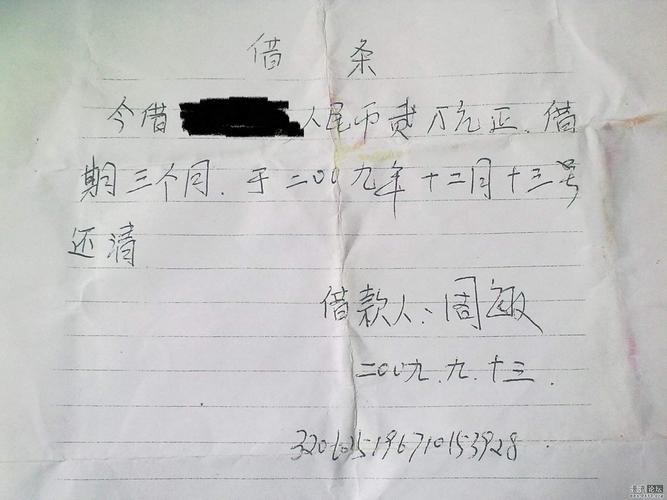 借 条
今借 人民币贰万元正. 借
期三个月. 于二〇〇九年十二月十三号
还清
借款人: 周敏
二〇〇九.九.十三.